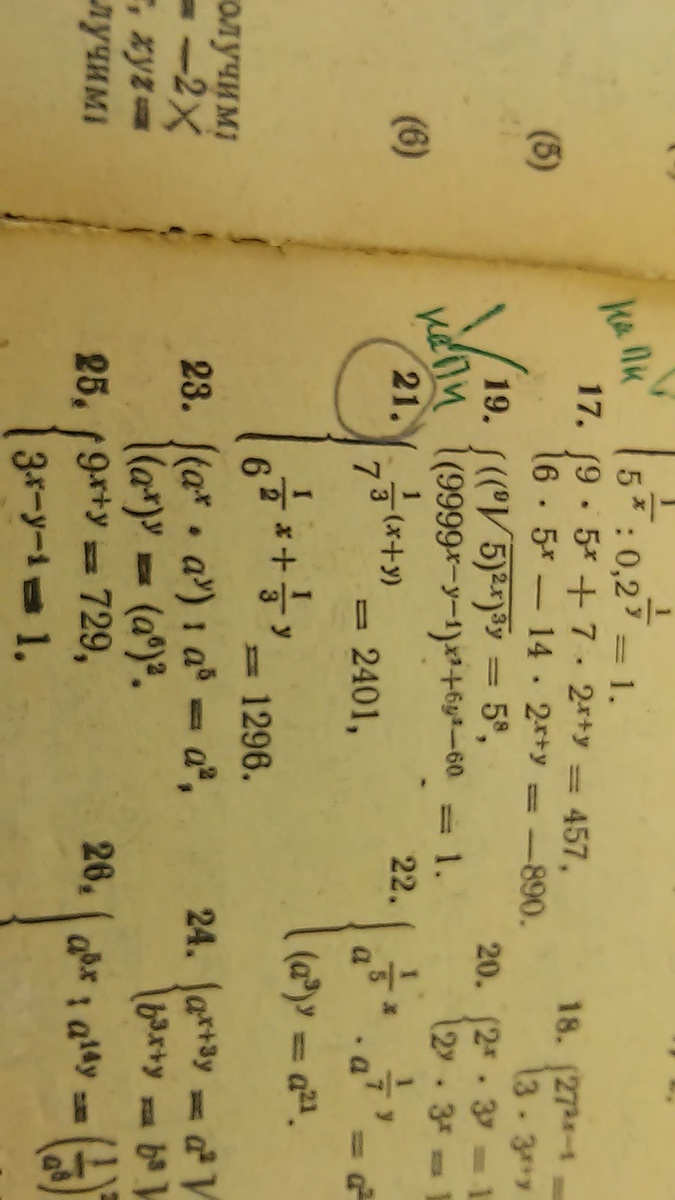 олучимі
= —2X
, xyz =
лучимі
(5)
(6)
на Пи
5^{1/x} : 0,2^{1/y} = 1.
17. { 9 · 5^x + 7 · 2^{x+y} = 457,
6 · 5^x — 14 · 2^{x+y} = —890.
18. { 27^{2x-1} =
3 · 3^{x+y}
на Пи
19. { ((⁹√5)^{2x})^{3y} = 5^8,
(9999^{x-y-1})^{x²+6y²-60} = 1.
20. { 2^x · 3^y = 1
2^y · 3^x = 1
21. { 7^{1/3 (x+y)} = 2401,
6^{1/2 x + 1/3 y} = 1296.
22. { a^{1/5 x} · a^{1/7 y} = a^2
(a^3)^y = a^{21}.
23. { (a^x · a^y) : a^5 = a^2,
(a^x)^y = (a^6)^2.
24. { a^{x+3y} = a^2 √
b^{3x+y} = b^3 √
25. { 9^{x+y} = 729,
3^{x-y-1} = 1.
26. { a^{5x} : a^{14y} = (1/a^8)^2